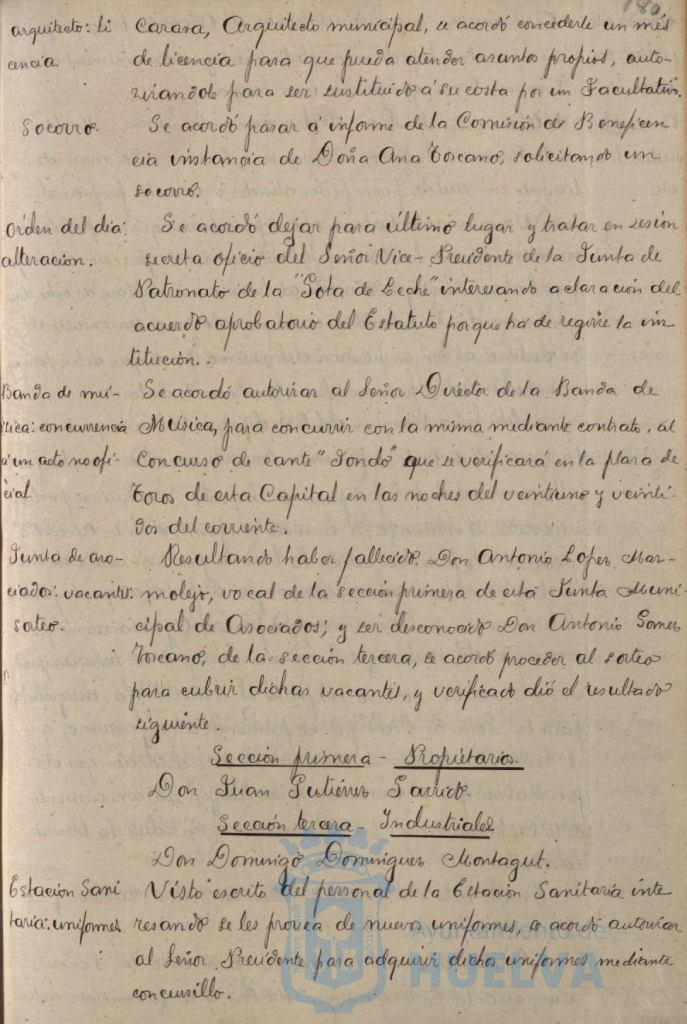 180.
arquitecto: li
cencia.
Carasa, Arquitecto municipal, se acordó concederle un més
de licencia para que pueda atender asuntos propios, auto-
rizandole para ser sustituido á su costa por un Facultativo.
Socorro.
Se acordó pasar á informe de la Comisión de Beneficen
cia instancia de Doña Ana Toscano, solicitando un
socorro.
Orden del dia:
alteración.
Se acordó dejar para último lugar y tratar en sesión
secreta oficio del Señor Vice-Presidente de la Junta de
Patronato de la "Gota de Leche" interesando aclaración del
acuerdo aprobatorio del Estatuto porque há de regirse la ins
titución..
Banda de mú-
sica: concurrencia
á un acto no ofi-
cial
Se acordó autorizar al Señor Diréctor de la Banda de
Música, para concurrir con la misma mediante contrato, al
Concurso de cante "Jondo" que se verificará en la plaza de
Toros de esta Capital en las noches del veintiuno y veinti-
dos del corriente.
Junta de aso-
ciados: vacantes:
sorteo.
Resultando haber fallecido Don Antonio López Mar-
molejo, vocal de la sección primera de esta Junta Muni-
cipal de Asociados; y ser desconocido Don Antonio Gomez
Toscano, de la sección tercera, se acordó proceder al sorteo
para cubrir dichas vacantes, y verificado dió el resultado
siguiente.
Sección primera - Propietarios.
Don Juan Gutiérrez Garrido.
Sección tercera - Industriales
Don Domingo Dominguez Montagut.
Estación Sani
taria: uniformes
Visto escrito del personal de la Estación Sanitaria inte
resando se les provea de nuevos uniformes, se acordó autorizar
al Señor Presidente para adquirir dichos uniformes mediante
concursillo.
Ayuntamiento de
HUELVA